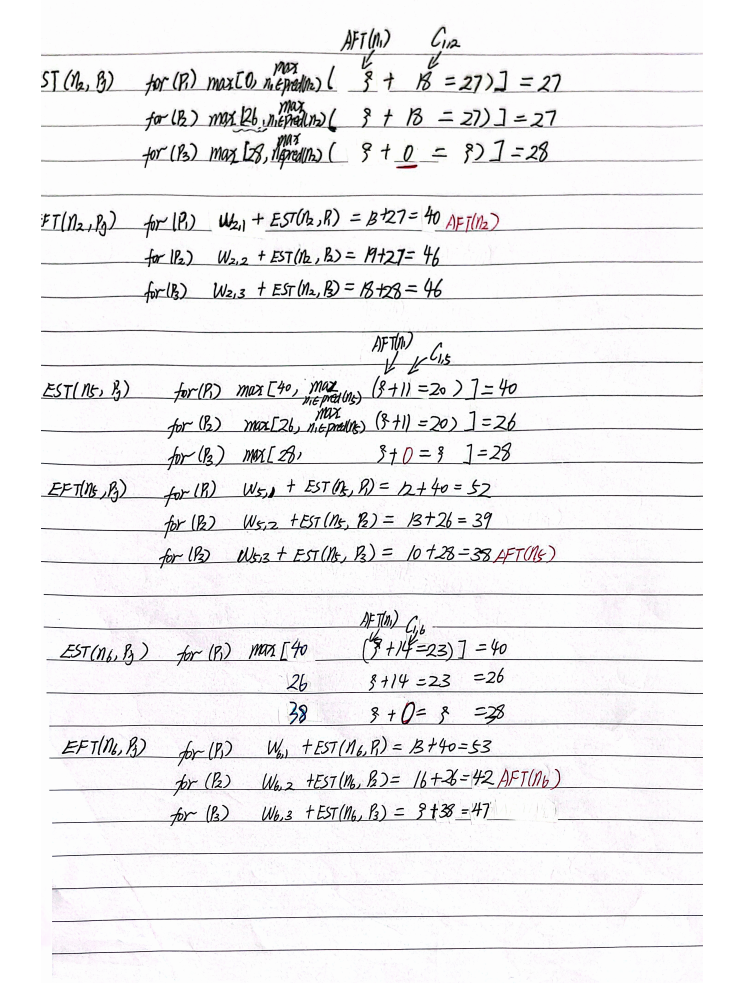 AFT(n₁) C₁,₂
ST(n₂, Pj) for (P₁) max[0, max n₁∈pred(n₂) ( 9 + 18 = 27)] = 27
for (P₂) max[26, max n₁∈pred(n₂) ( 9 + 18 = 27)] = 27
for (P₃) max[28, max n₁∈pred(n₂) ( 9 + 0 = 9)] = 28
FT(n₂, Pj) for (P₁) W₂,₁ + EST(n₂, P₁) = 13+27 = 40 AFT(n₂)
for (P₂) W₂,₂ + EST(n₂, P₂) = 19+27 = 46
for (P₃) W₂,₃ + EST(n₂, P₃) = 18+28 = 46
AFT(n₁) C₁,₅
EST(n₅, Pj) for (P₁) max[40, max n₁∈pred(n₅) (9+11 = 20)] = 40
for (P₂) max[26, max n₁∈pred(n₅) (9+11 = 20)] = 26
for (P₃) max[28, 9+0 = 9 ] = 28
EFT(n₅, Pj) for (P₁) W₅,₁ + EST(n₅, P₁) = 12+40 = 52
for (P₂) W₅,₂ + EST(n₅, P₂) = 13+26 = 39
for (P₃) W₅,₃ + EST(n₅, P₃) = 10+28 = 38 AFT(n₅)
AFT(n₁) C₁,₆
EST(n₆, Pj) for (P₁) max[40 (9+14 = 23)] = 40
26 9+14 = 23 = 26
38 9+0 = 9 = 28
EFT(n₆, Pj) for (P₁) W₆,₁ + EST(n₆, P₁) = 13+40 = 53
for (P₂) W₆,₂ + EST(n₆, P₂) = 16+26 = 42 AFT(n₆)
for (P₃) W₆,₃ + EST(n₆, P₃) = 9+38 = 47